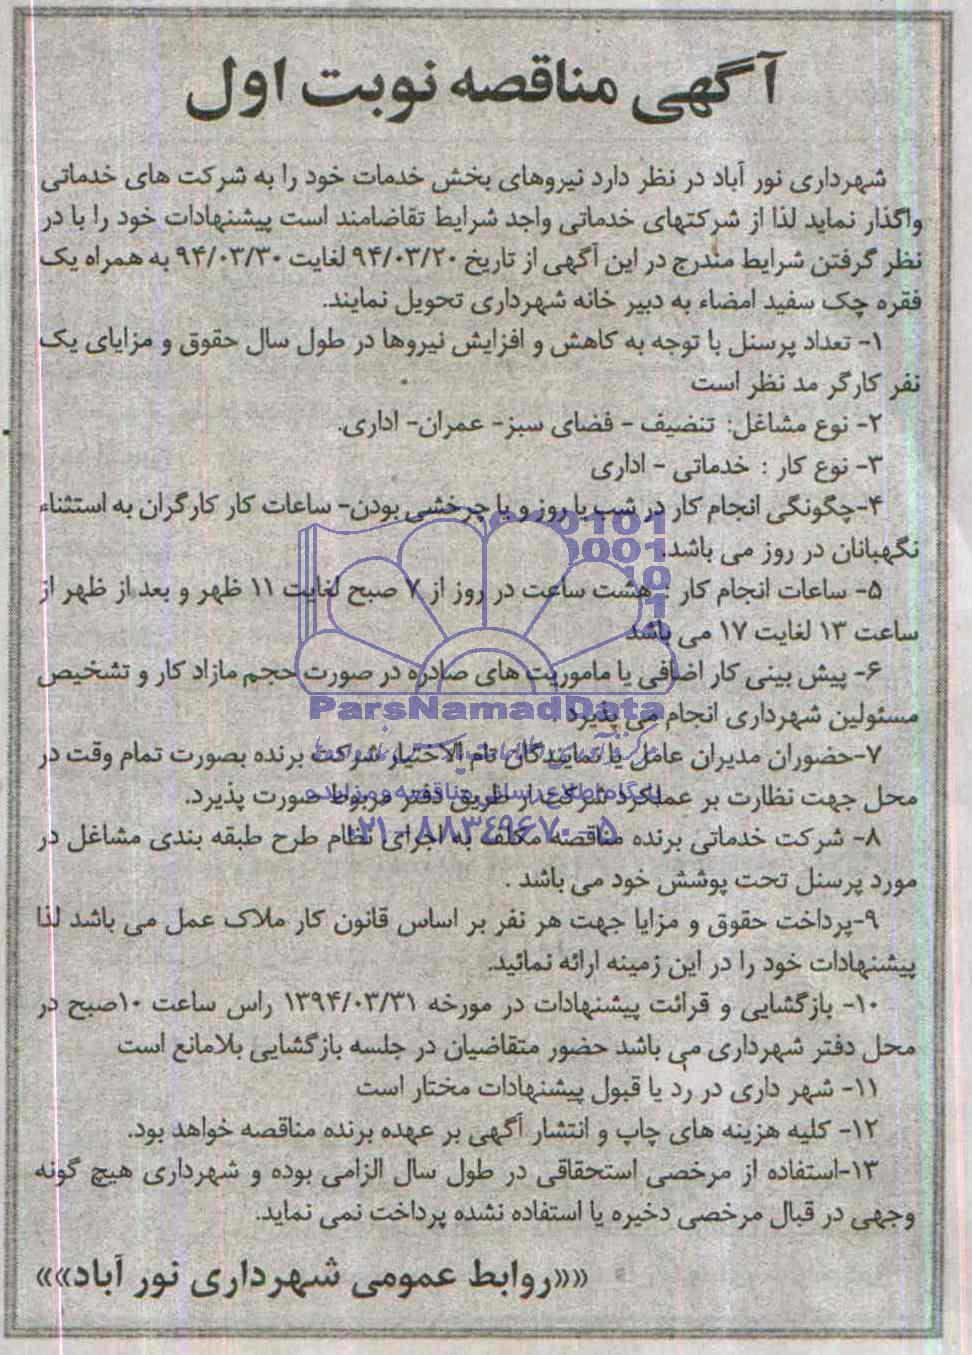 آگهی مناقصه نوبت اول
شهرداری نور آباد در نظر دارد نیروهای بخش خدمات خود را به شرکت های خدماتی
واگذار نماید لذا از شرکتهای خدماتی واجد شرایط تقاضامند است پیشنهادات خود را با در
نظر گرفتن شرایط مندرج در این آگهی از تاریخ ۹۴/۰۳/۲۰ لغایت ۹۴/۰۳/۳۰ به همراه یک
فقره چک سفید امضاء به دبیر خانه شهرداری تحویل نمایند.
۱- تعداد پرسنل با توجه به کاهش و افزایش نیروها در طول سال حقوق و مزایای یک
نفر کارگر مد نظر است
۲- نوع مشاغل: تنضیف - فضای سبز- عمران- اداری.
۳- نوع کار : خدماتی - اداری
۴-چگونگی انجام کار در شب یا روز و یا چرخشی بودن- ساعات کار کارگران به استثناء
نگهبانان در روز می باشد.
۵- ساعات انجام کار : هشت ساعت در روز از ۷ صبح لغایت ۱۱ ظهر و بعد از ظهر از
ساعت ۱۳ لغایت ۱۷ می باشد
۶- پیش بینی کار اضافی یا ماموریت های صادره در صورت حجم مازاد کار و تشخیص
مسئولین شهرداری انجام می پذیرد .
ParsNamadData
۷-حضوران مدیران عامل یا نمایندگان تام الاختیار شرکت برنده بصورت تمام وقت در
محل جهت نظارت بر عملکرد شرکت از طریق دفتر مربوط صورت پذیرد.
پایگاه اطلاع رسانی مناقصه و مزایده
۰۲۱-۸۸۳۴۹۶۷۰-۵
۸- شرکت خدماتی برنده مناقصه مکلف به اجرای نظام طرح طبقه بندی مشاغل در
مورد پرسنل تحت پوشش خود می باشد .
۹-پرداخت حقوق و مزایا جهت هر نفر بر اساس قانون کار ملاک عمل می باشد لذا
پیشنهادات خود را در این زمینه ارائه نمائید.
۱۰- بازگشایی و قرائت پیشنهادات در مورخه ۱۳۹۴/۰۳/۳۱ راس ساعت ۱۰صبح در
محل دفتر شهرداری می باشد حضور متقاضیان در جلسه بازگشایی بلامانع است
۱۱- شهر داری در رد یا قبول پیشنهادات مختار است
۱۲- کلیه هزینه های چاپ و انتشار آگهی بر عهده برنده مناقصه خواهد بود.
۱۳-استفاده از مرخصی استحقاقی در طول سال الزامی بوده و شهرداری هیچ گونه
وجهی در قبال مرخصی دخیره یا استفاده نشده پرداخت نمی نماید.
««روابط عمومی شهرداری نور آباد»»